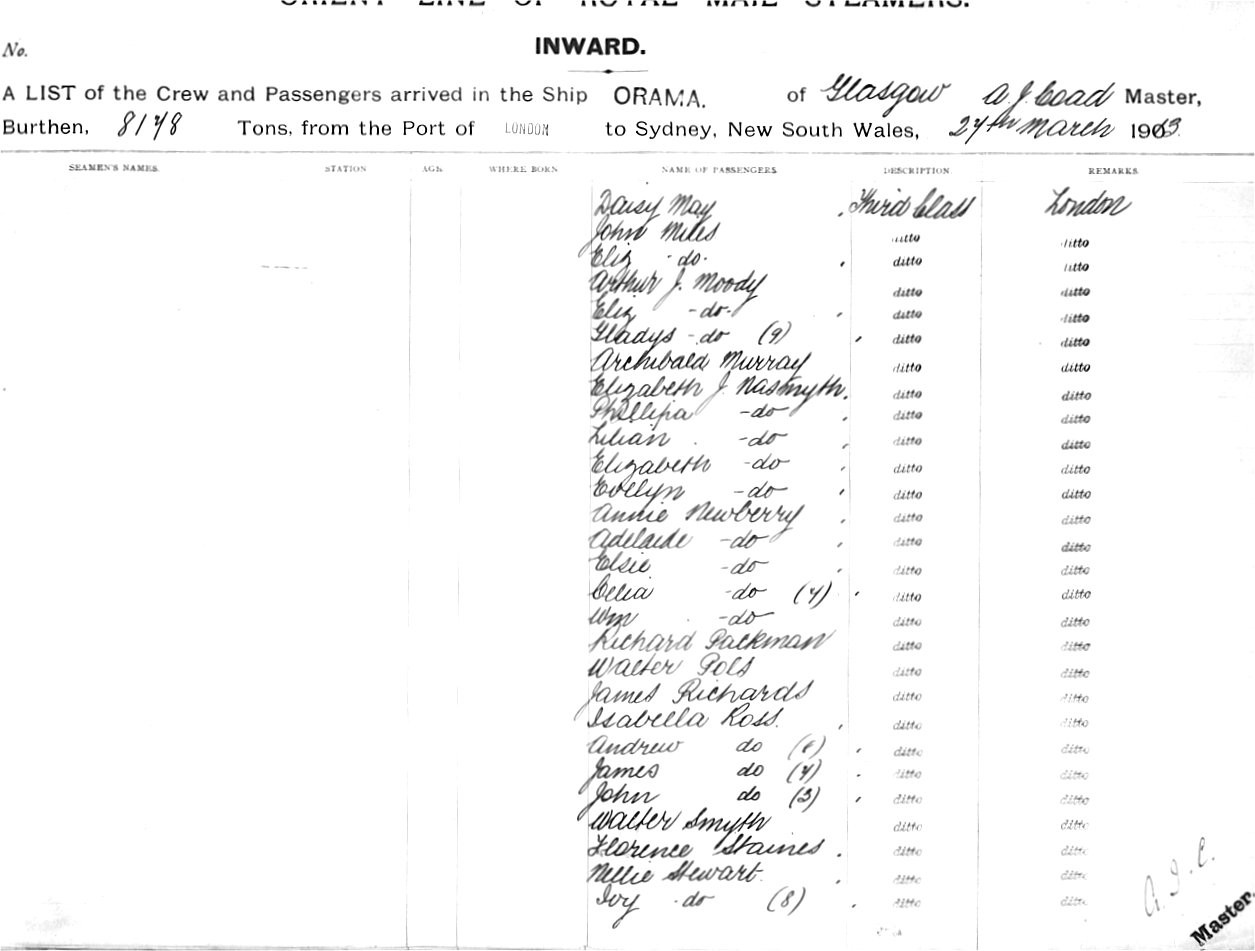 ORIENT LINE OF ROYAL MAIL STEAMERS.
No.
INWARD.
A LIST of the Crew and Passengers arrived in the Ship ORAMA. of Glasgow A. J. Coad Master,
Burthen, 8178 Tons, from the Port of LONDON to Sydney, New South Wales, 27th March 1913.
SEAMEN'S NAMES. STATION AGE. WHERE BORN NAME OF PASSENGERS DESCRIPTION REMARKS
Daisy May Third Class London
John Miles ditto ditto
Eliz -do- ditto ditto
Arthur J. Moody ditto ditto
Eliz -do- ditto ditto
Gladys -do (9) ditto ditto
Archibald Murray ditto ditto
Elizabeth J. Nasmyth ditto ditto
Phillipa -do ditto ditto
Lilian -do ditto ditto
Elizabeth -do ditto ditto
Evelyn -do ditto ditto
Annie Newberry ditto ditto
Adelaide -do ditto ditto
Elsie -do ditto ditto
Celia -do (7) ditto ditto
Wm -do ditto ditto
Richard Packman ditto ditto
Walter Pols ditto ditto
James Richards ditto ditto
Isabella Ross. ditto ditto
Andrew do ditto ditto
James do ditto ditto
John do (3) ditto ditto
Walter Smyth ditto ditto
Florence Staines ditto ditto
Nellie Stewart ditto ditto
Ivy -do (8) ditto ditto
Master.